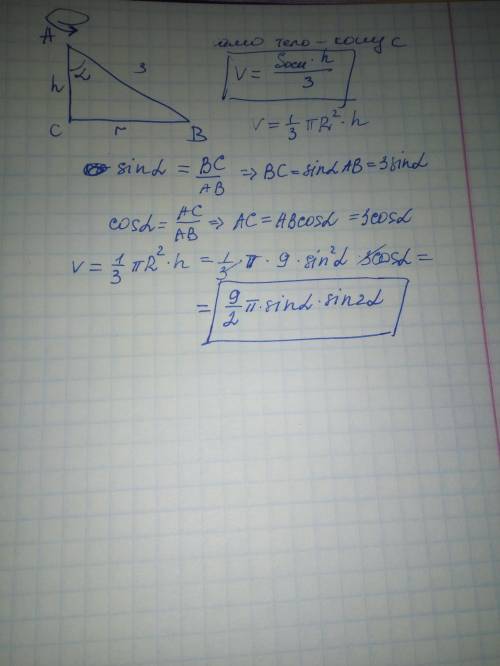 тело - конус
A
3
α
h
C
r
B
V = Sосн · h / 3
V = 1/3 πR² · h
sinα = BC/AB ⇒ BC = sinα AB = 3 sinα
cosα = AC/AB ⇒ AC = AB cosα = 3cosα
V = 1/3 πR² · h = 1/3 · π · 9 · sin²α · 3cosα =
= 9/2 π · sinα · sin2α